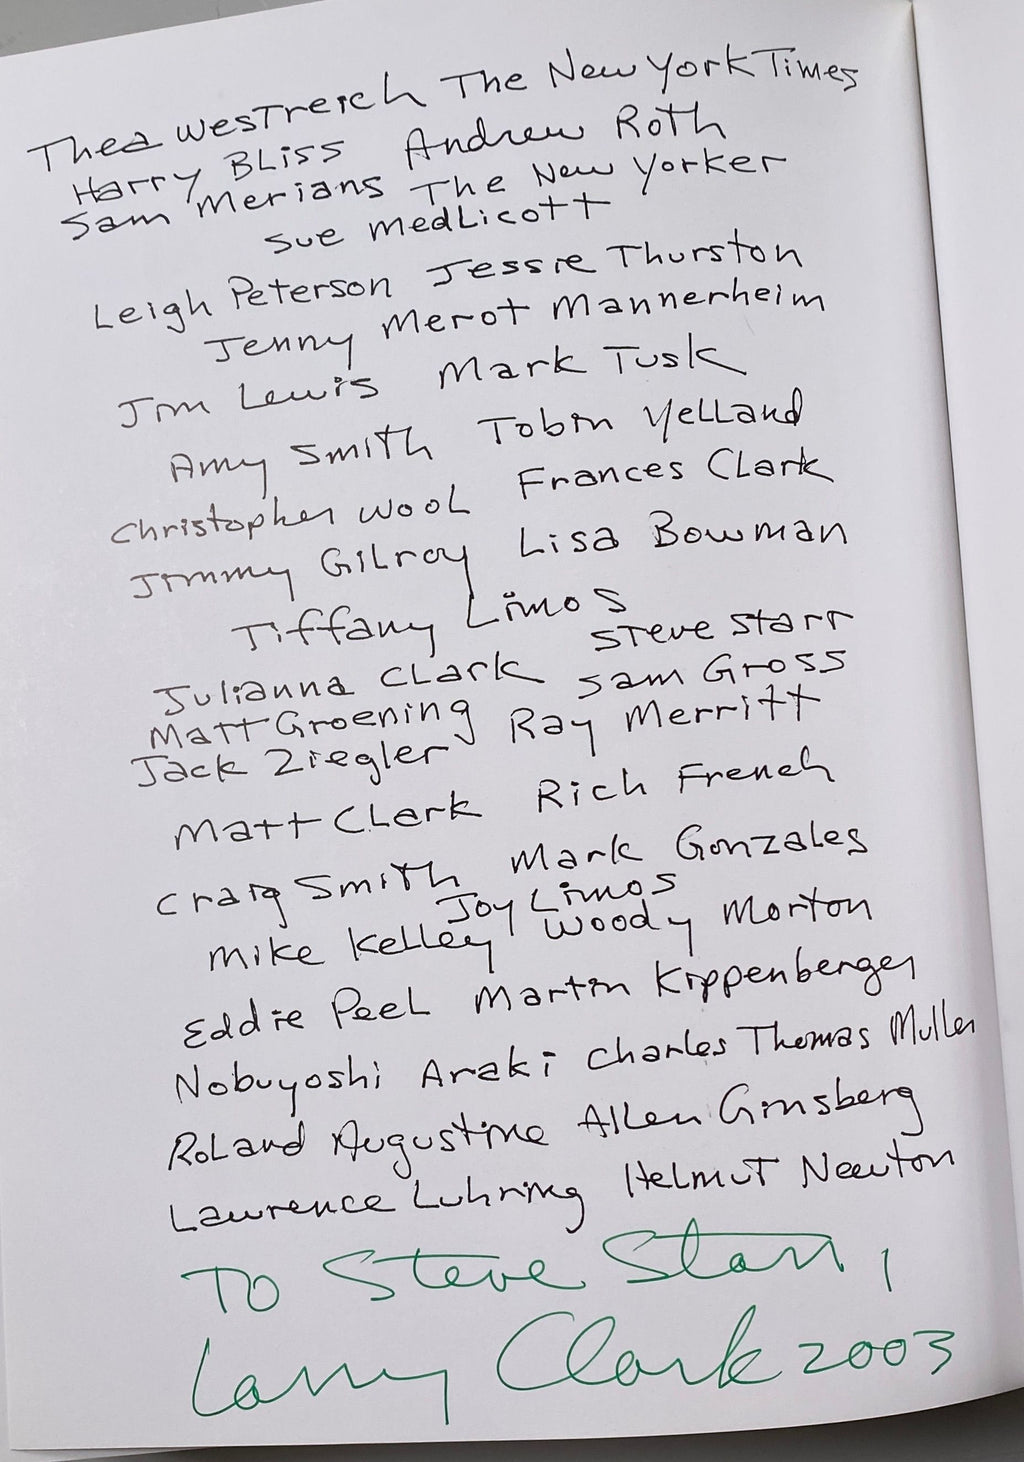 Thea Westreich The New York Times
Harry Bliss Andrew Roth
Sam Merians The New Yorker
Sue Medlicott
Leigh Peterson Jessie Thurston
Jenny Merot Mannerheim
Jim Lewis Mark Tusk
Amy Smith Tobin Yelland
Christopher Wool Frances Clark
Jimmy Gilroy Lisa Bowman
Tiffany Limos
Julianna Clark Steve Starr
Matt Groening Sam Gross
Jack Ziegler Ray Merritt
Matt Clark Rich French
Craig Smith Mark Gonzales
Joy Limos
Mike Kelley Woody Morton
Eddie Peel Martin Kippenberger
Nobuyoshi Araki Charles Thomas Muller
Roland Augustine Allen Ginsberg
Lawrence Luhring Helmut Newton
To Steve Starr,
Larry Clark 2003